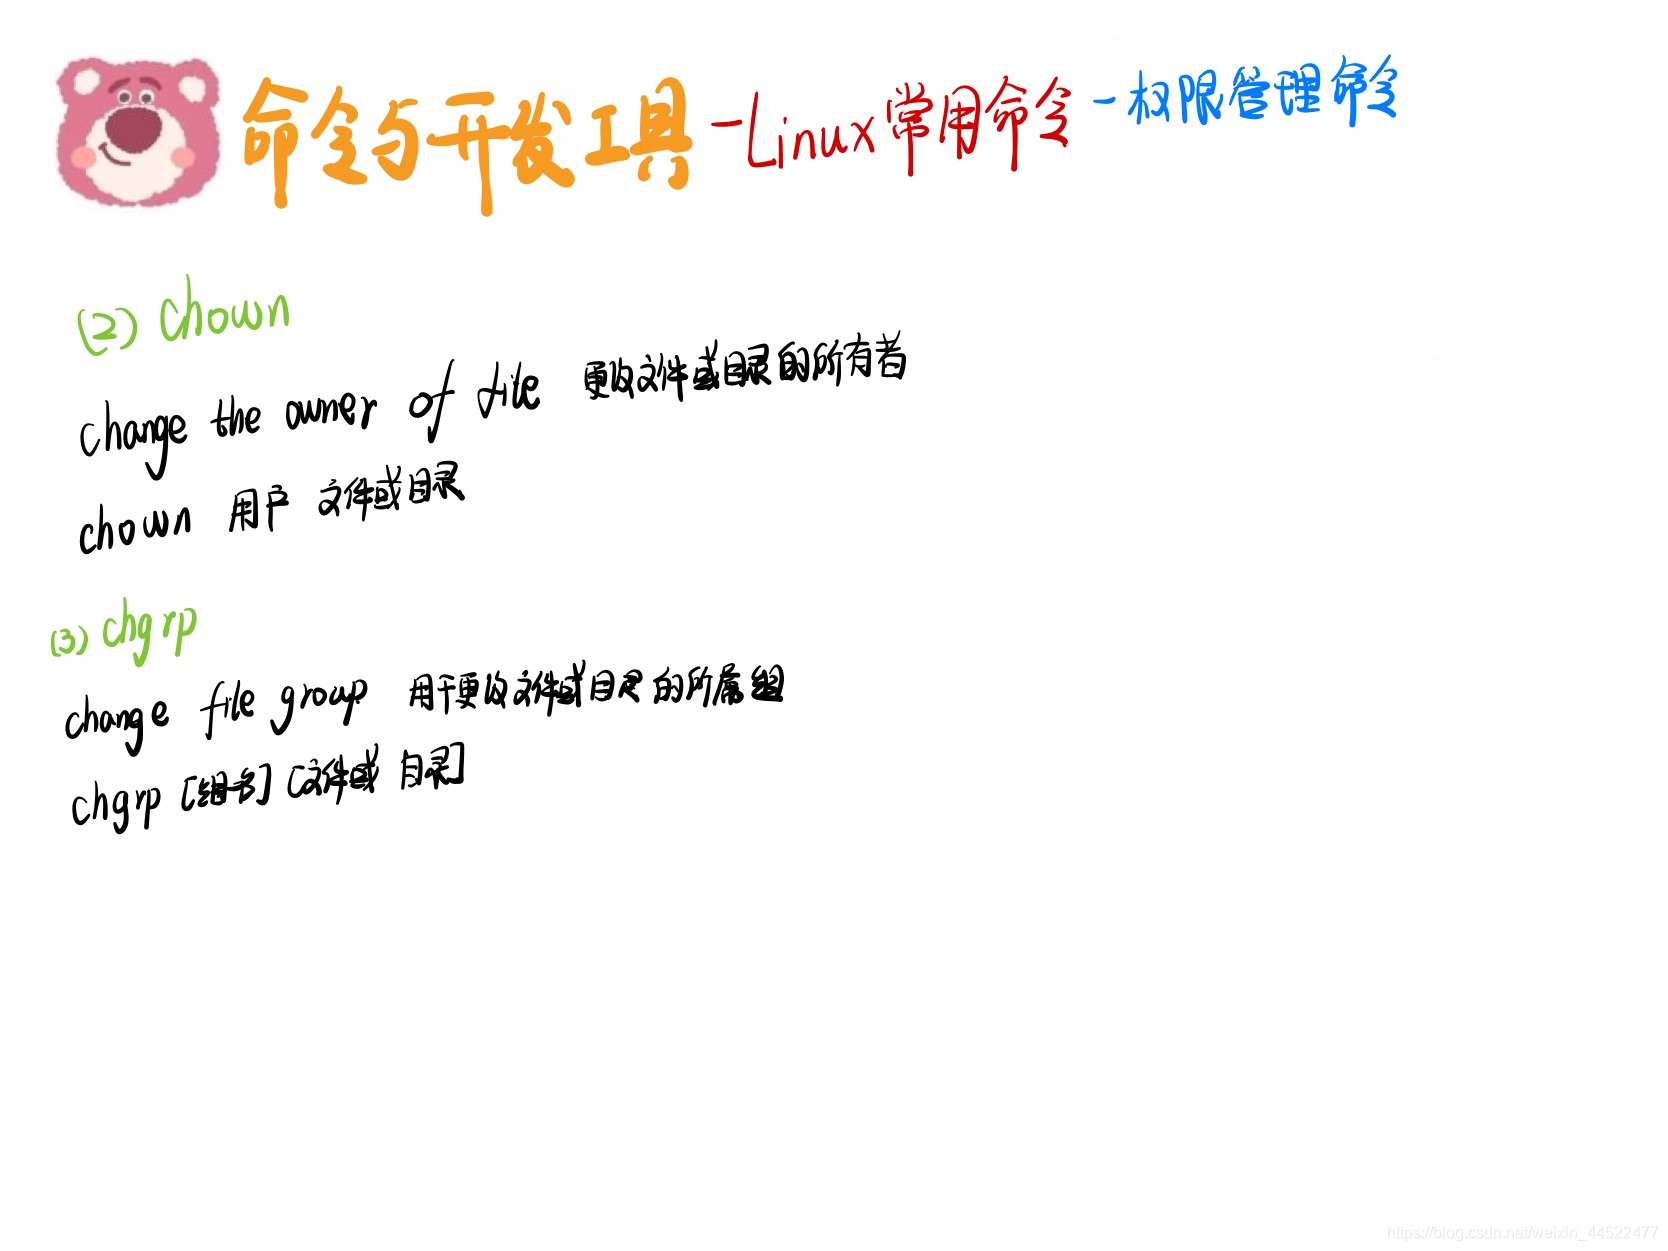 命令与开发工具-Linux常用命令-权限管理命令
(2) chown
change the owner of file 更改文件或目录的所有者
chown 用户 文件或目录
(3) chgrp
change file group 用于更改文件或目录的所属组
chgrp [组名] [文件或 目录]
https://blog.csdn.net/weixin_44522477